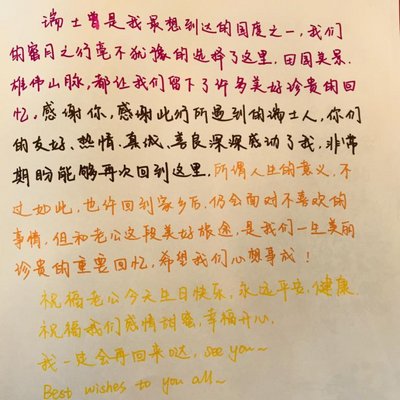 瑞士曾是我最想到达的国度之一,我们
的蜜月之行毫不犹豫的选择了这里.田园美景.
雄伟山脉,都让我们留下了许多美好珍贵的回
忆,感谢你,感谢此行所遇到的瑞士人,你们
的友好、热情.真诚、善良深深感动了我,非常
期盼能够再次回到这里.所谓人生的意义,不
过如此,也许回到家乡后,仍会面对不喜欢的
事情,但和老公这段美好旅途,是我们一生美丽
珍贵的重要回忆,希望我们心想事成!
祝福老公今天生日快乐,永远平安,健康.
祝福我们感情甜蜜,幸福开心.
我一定会再回来哒,see you~
Best wishes to you all~